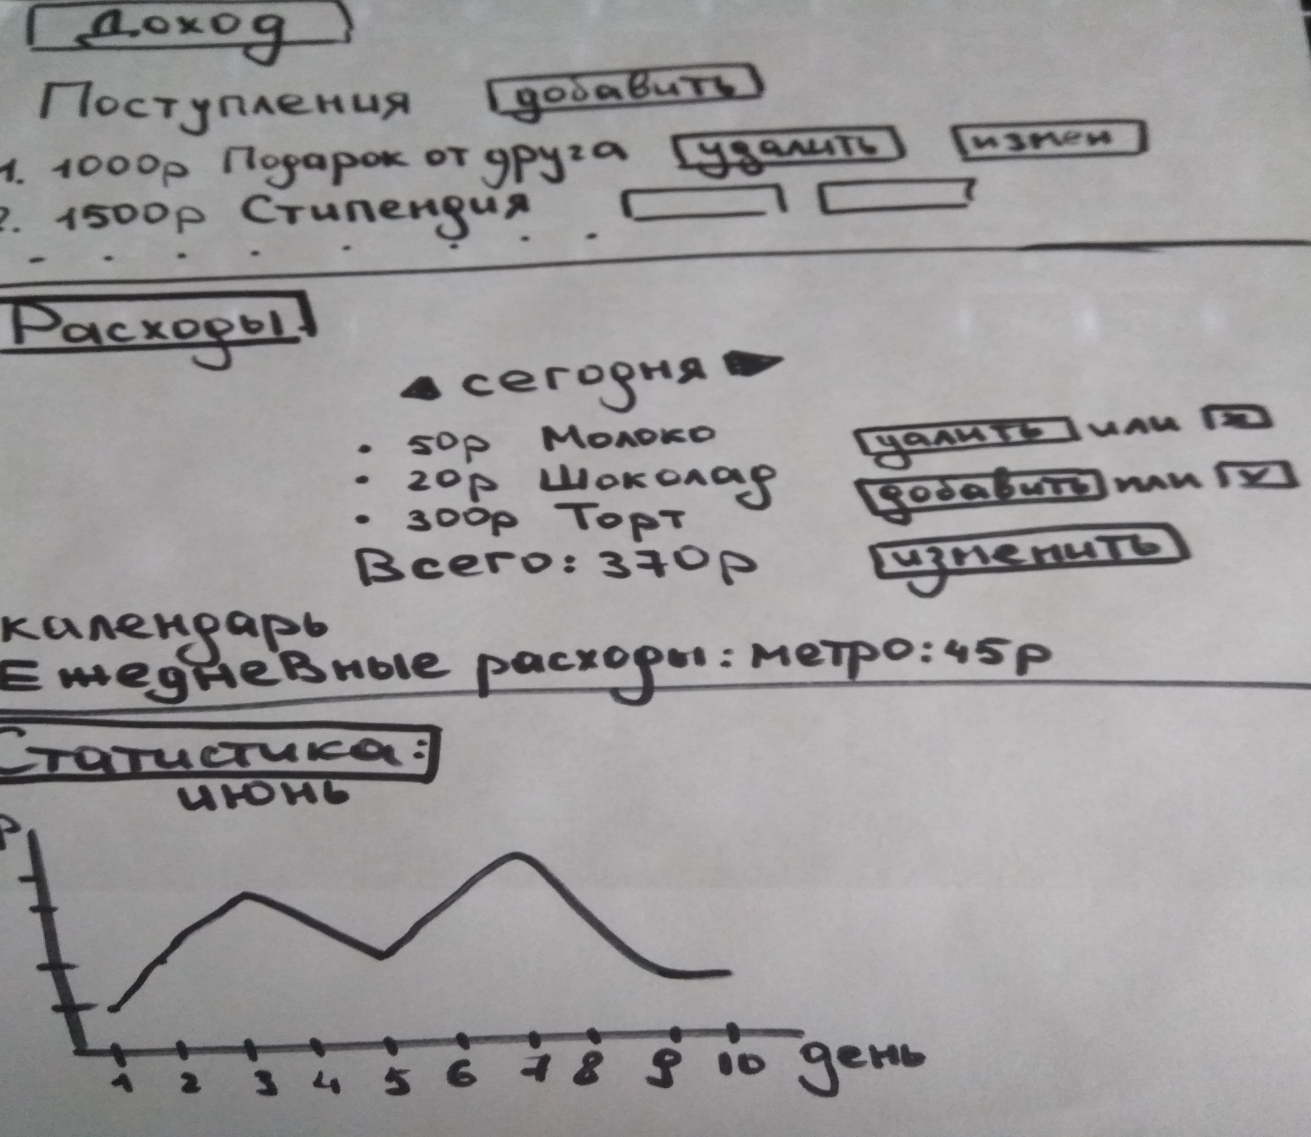 Доход
Поступления добавить
1. 1000р Подарок от друга удалить измен
2. 1500р Стипендия
Расходы
сегодня
• 50р Молоко удалить или x
• 20р Шоколад добавить или v
• 300р Торт
Всего: 370р изменить
календарь
Ежедневные расходы: метро: 45р
Статистика:
июнь
р
1 2 3 4 5 6 7 8 9 10 день